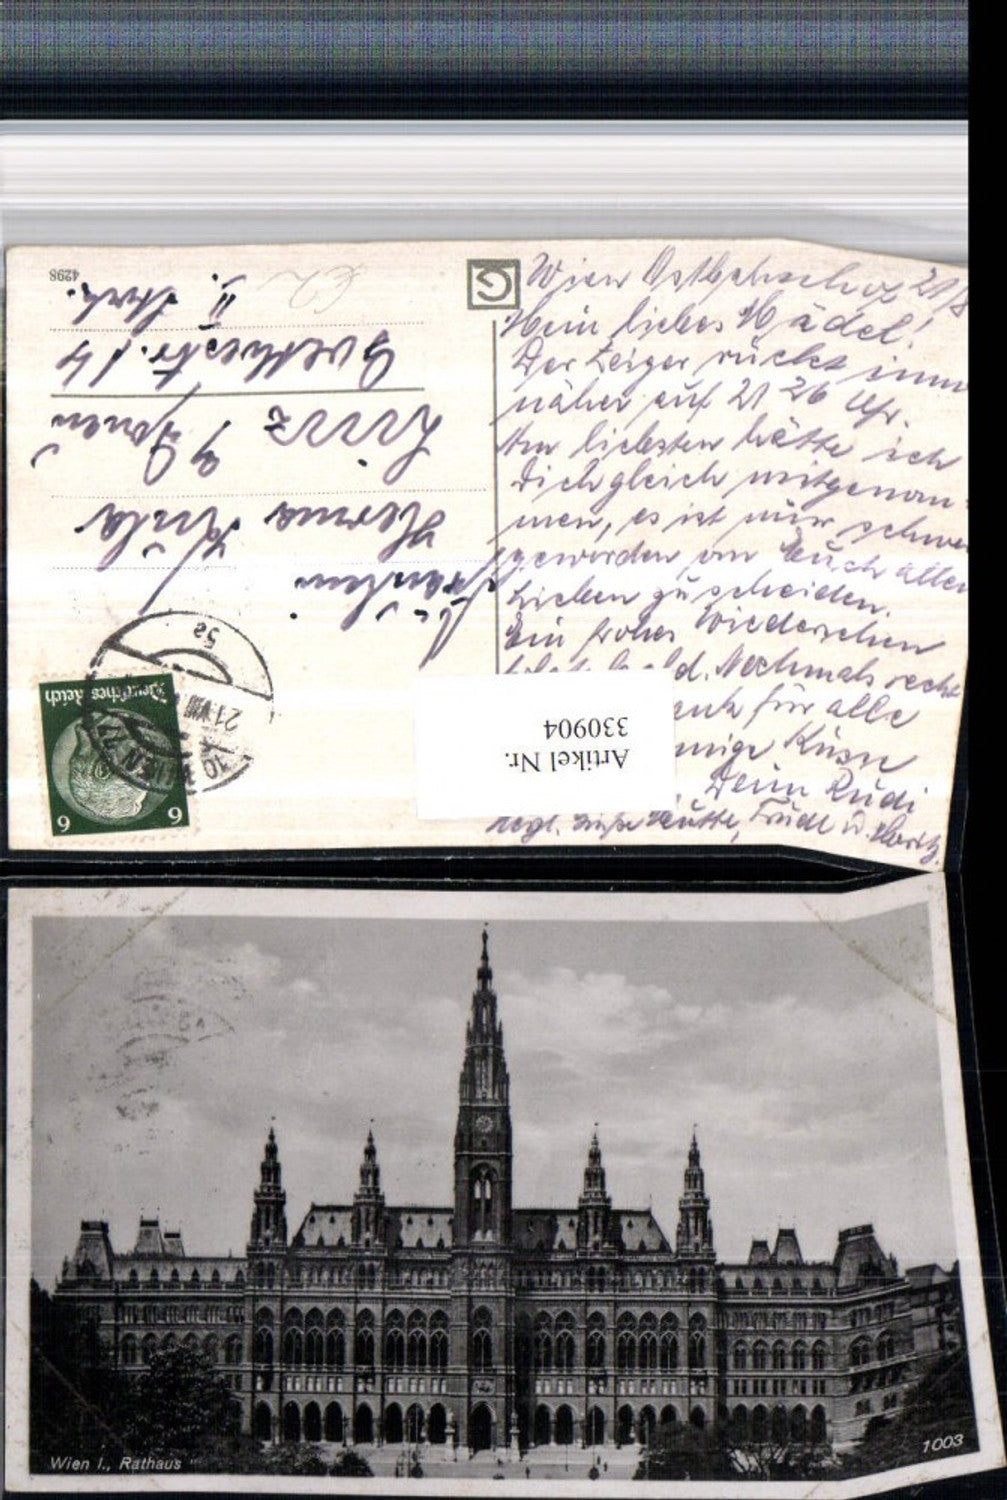 Wien Ostbahnhof 21/8
Mein liebes Mädel!
Der Zeiger rückt imm
näher auf 21 26 Uhr.
Am liebsten hätte ich
Dich gleich mitgenom-
men, es ist mir schwer
geworden von Euch allen
Lieben zu scheiden.
Ein frohes Wiedersehen
d. Nochmals recht
ank für alle
nnige Küsse
Dein Rudi
Fräulein
Herma
Linz
Goethestr. 14
II. Stock.
4298
Deutsches Reich
6 6
WIEN 77
21.VIII
5a
Artikel Nr.
330904
Wien I., Rathaus
1003